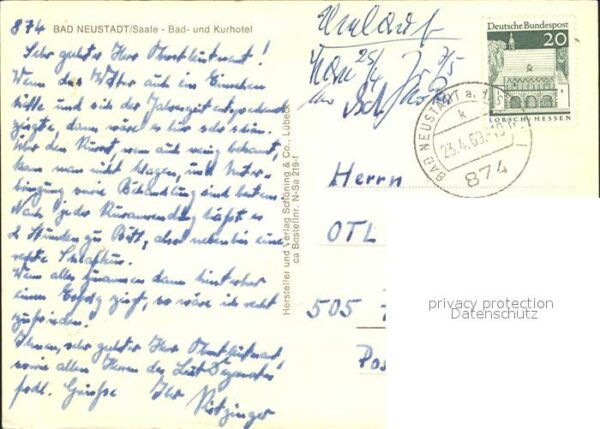 874 BAD NEUSTADT/Saale - Bad- und Kurhotel
Sehr geehrter Herr Oberstleutnant!
Wenn das Wetter auch ein Einsehen
hätte und sich der Jahreszeit entsprechend
zeigte, dann wäre es hier sehr schön.
Über den Kurort, wenn auch wenig bekannt,
kann man nicht klagen, auch Unter-
bingung sowie Behandlung sind bestens.
Nach jeder Kuranwendung heißt es
2 Stunden zu Bett, also nebenbei eine
rechte Schlafkur.
Wenn alles zusammen dann hinterher
einen Erfolg zeigt, so wäre ich recht
zufrieden.
Ihnen, sehr geehrter Herr Oberstleutnant
sowie allen Herren des
frdl. Grüsse Ihr
Hersteller und Verlag Schöning & Co., Lübeck
ca Bestellnr. N-Sa 219-f
Umlauf
25/4
7/5
Deutsche Bundespost
20
LORSCH/HESSEN
BAD NEUSTADT a. d. S
k
23.4.69
874
Herrn
OTL
505
Pos
privacy protection
Datenschutz